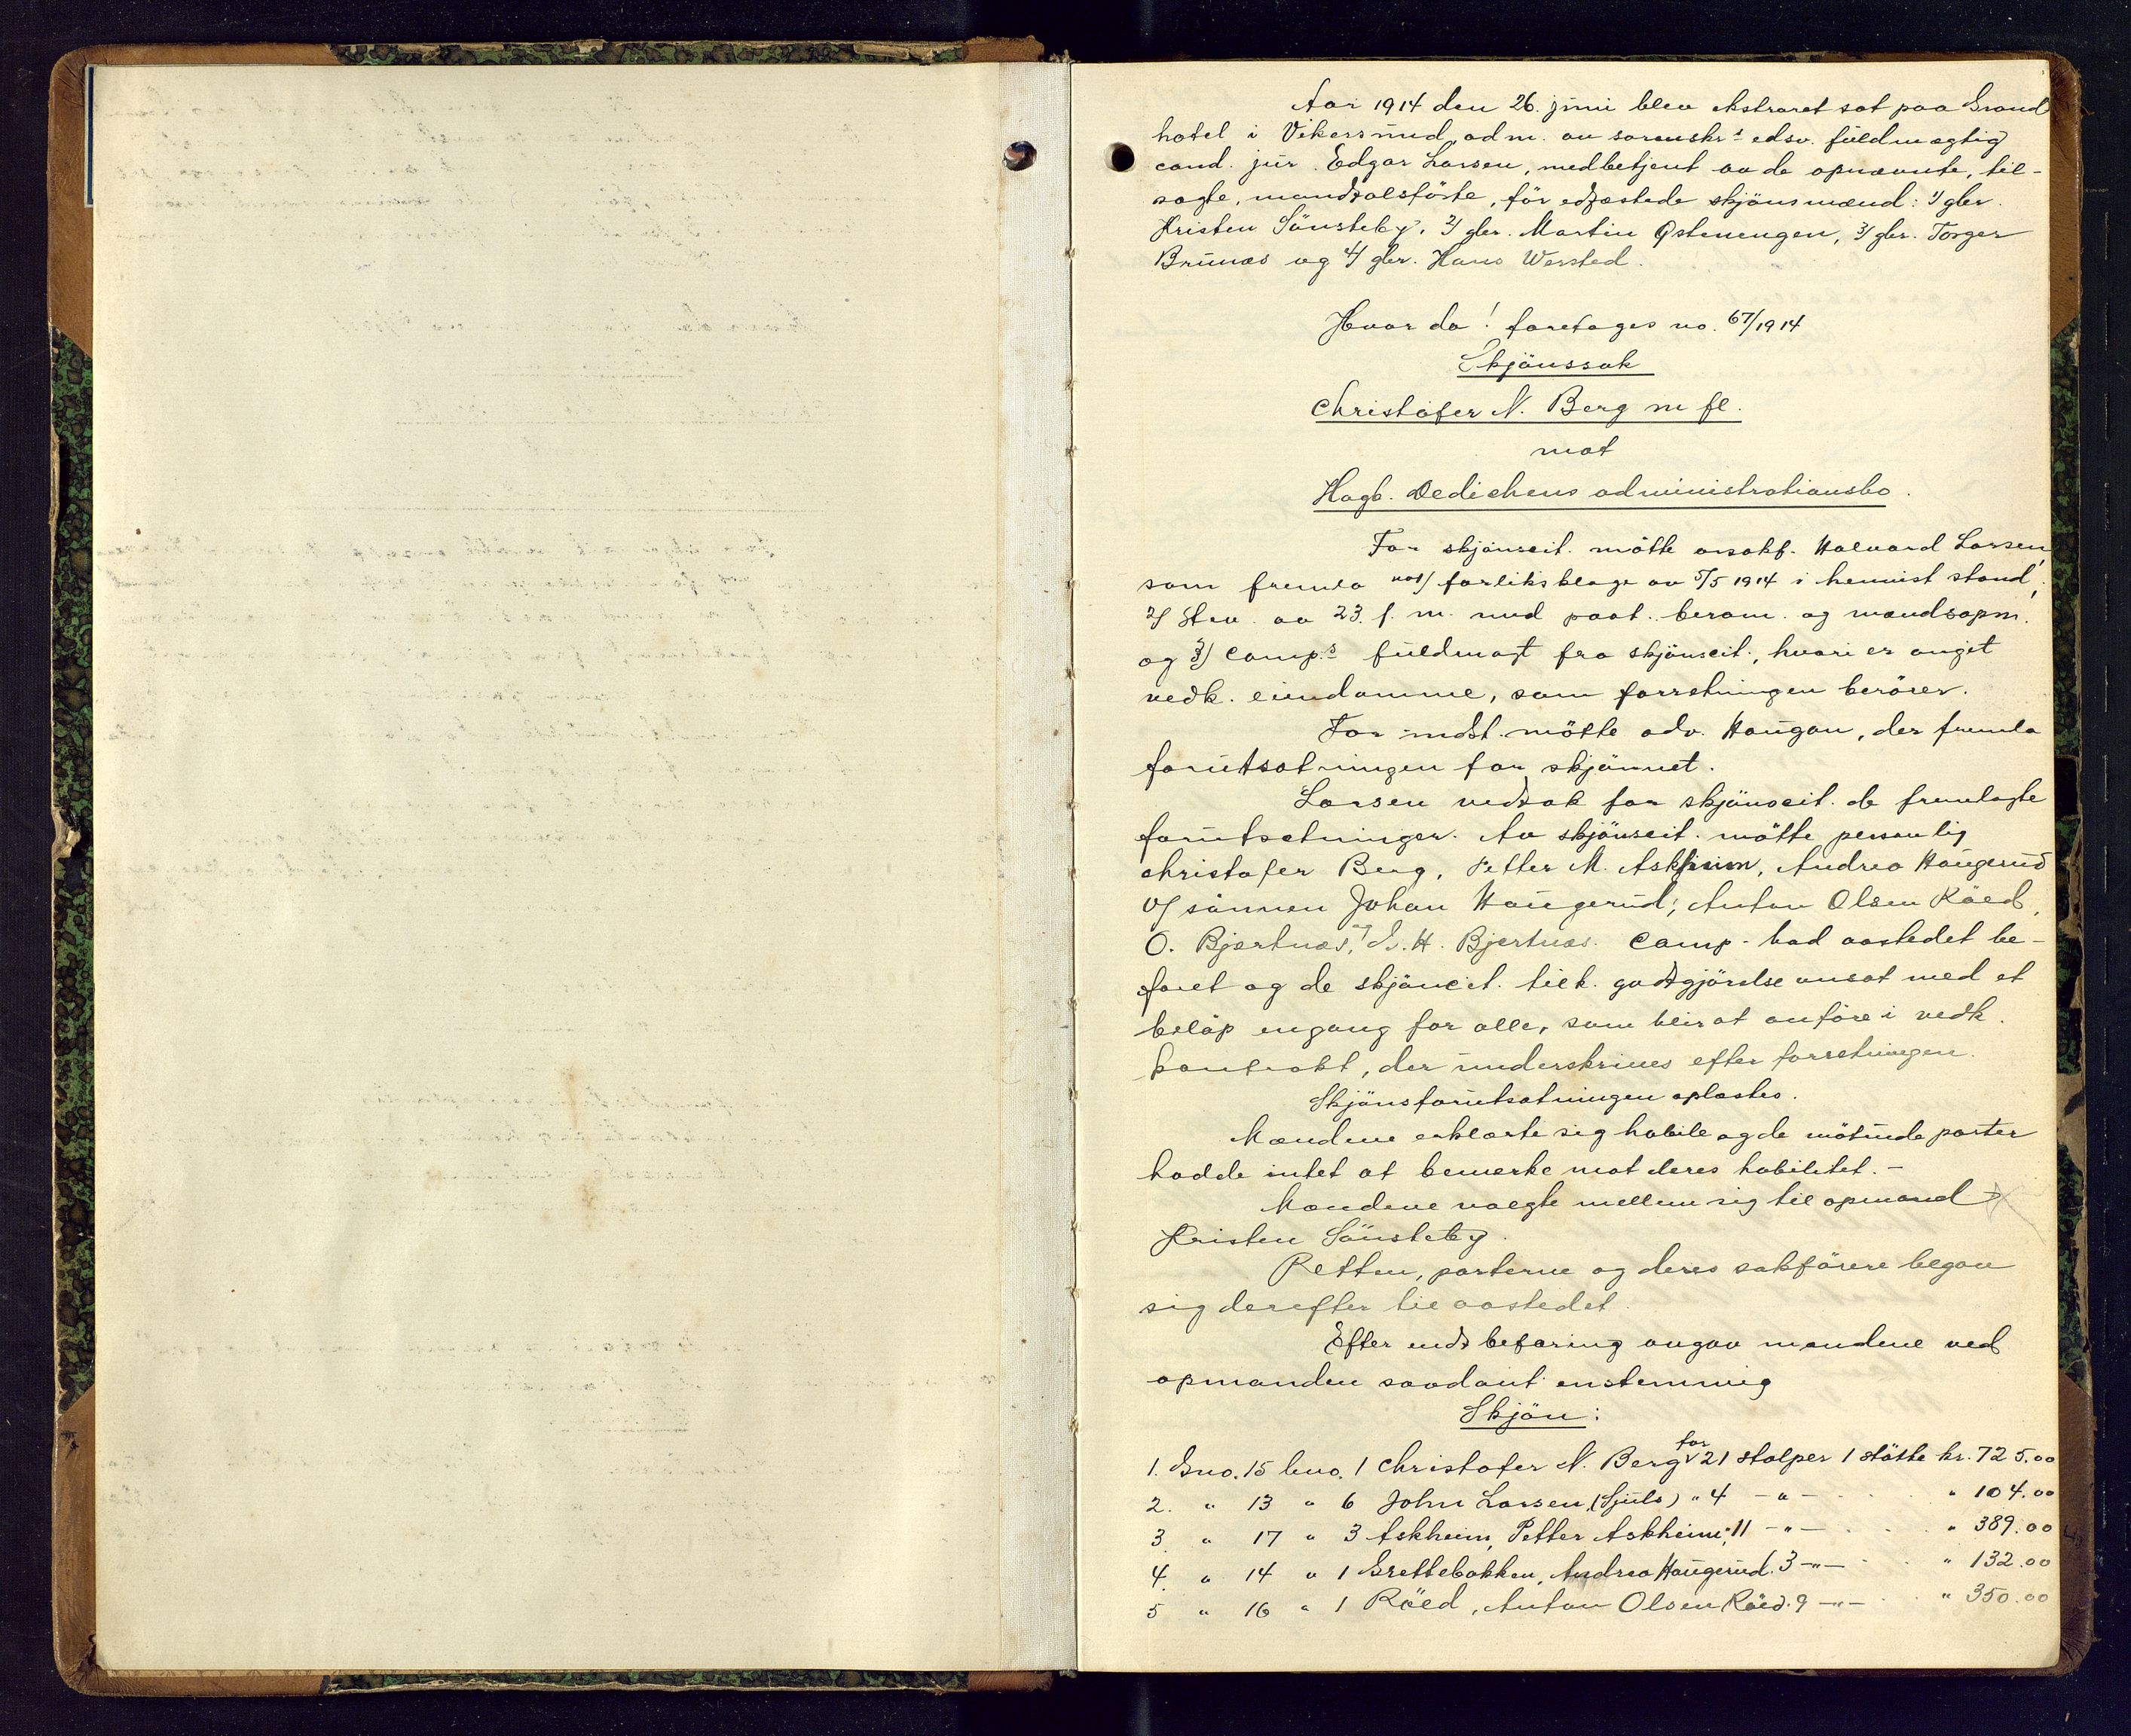 Aar 1914 den 26. juni blev ekstraret sat paa Grand
hotel i Vikersund, adm. av sorenskrs edsv. fuldmægtig
cand. jur. Edgar Larsen, medbetjent av de opnævnte, til-
sagte, mandtalsførte, før edfæstede skjønsmænd: 1/ gbr.
Kristen Sønsteby, 2/ gbr. Martin Østenengen, 3/ gbr. Torger
Brunæs og 4/ gbr. Hans Wersted.
Hvor da! foretages no. 67/1914
Skjønssak
Christofer N. Berg m fl.
mot
Hagb. Dedichens administrationsbo.
For skjønscit. møtte orsakf. Halvard Larsen,
som fremla no 1/ forliksklage av 5/5 1914 i henvist stand,
2/ Stev. av 23. f. m. med paat. beram. og mændsopn.
og 3/ Comp.s fuldmagt fra skjønscit., hvori er angit
vedk. eiendomme, som forretningen berører.
For indst. møtte adv. Haugan, der fremla
forutsætningen for skjønnet.
Larsen vedtok for skjønscit. de fremlagte
forutsætninger. Av skjønscit. møtte personlig
Christofer Berg, Petter M. Askheim, Andrea Haugerud
v/ sønnen Johan Haugerud, Anton Olsen Røed,
O. Bjertnæs, og E. H. Bjertnæs. Comp. bad aastedet be-
faret og de skjønscit. tilk. godtgjørelse ansat med et
beløp engang for alle, som blir at anføre i vedk.
kontrakt, der underskrives efter forretningen.
Skjønsforutsætningen oplæstes.
Mændene erklærte sig habile og de møtende parter
hadde intet at bemerke mot deres habilitet. -
Mændene valgte mellem sig til opmand
Kristen Sønsteby.
Retten, parterne og deres sakførere begav
sig derefter til aastedet.
Efter endt befaring avgav mændene ved
opmanden saadant enstemmig
Skjøn:
1. Gno. 15 bno. 1 Christofer N. Berg for 21 stolper 1 støtte kr. 725.00
2. " 13 " 6 John Larsen, (Sjuls) " 4 - " - " 104.00
3. " 17 " 3 Askheim, Petter Askheim " 11 - " - " 389.00
4. " 14 " 1 Grettebakken, Andrea Haugerud. 3 - " - " 132.00
5 " 16 " 1 Røed, Anton Olsen Røed. 9 - " - " 350.00